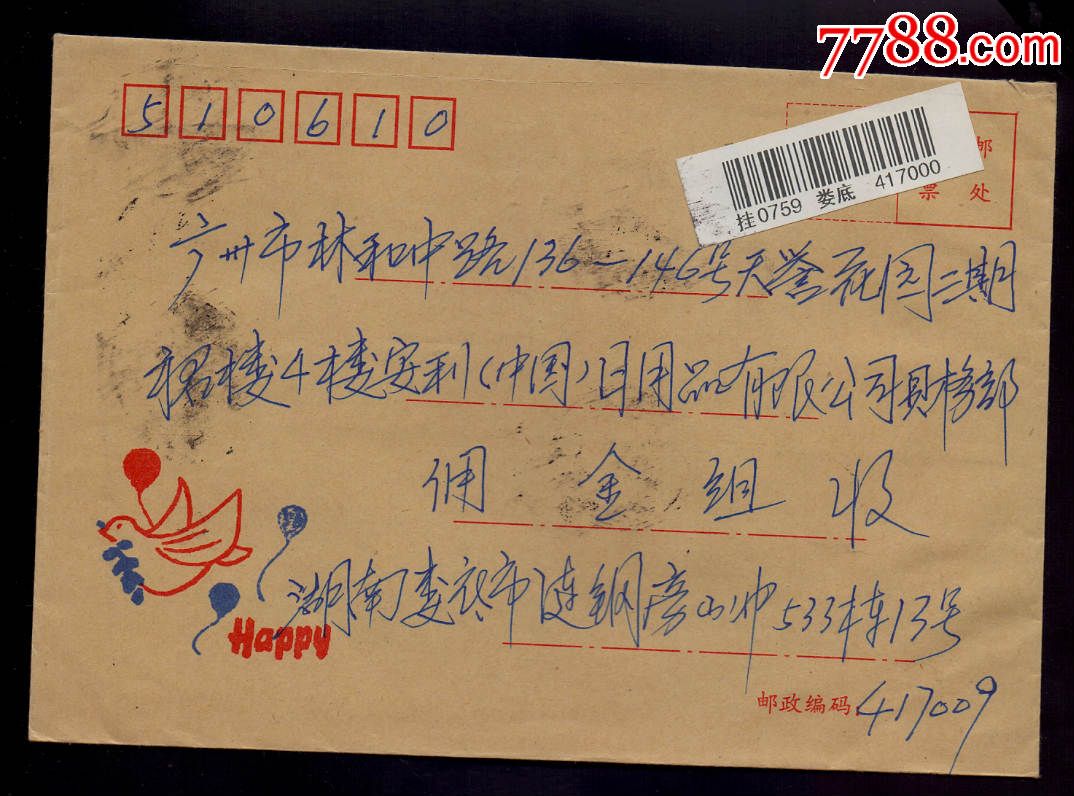 7788.com
510610
邮
票 处
挂0759 娄底 417000
广州市林和中路136—146号天誉花园二期
裙楼4楼安利(中国)日用品有限公司财务部
佣金组 收
湖南娄底市涟钢 山冲533栋13号
Happy
邮政编码 417009